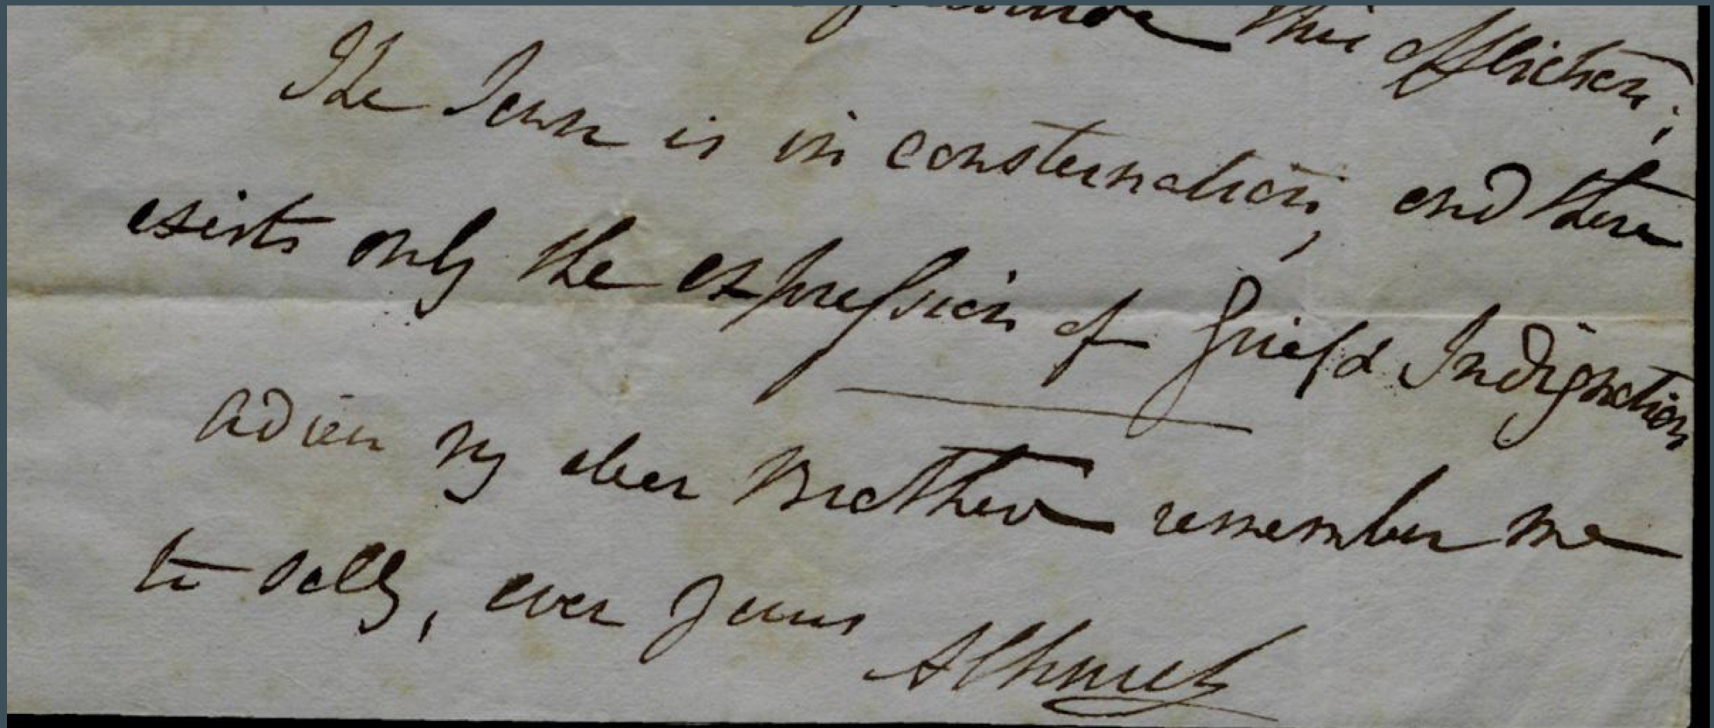 this affliction;
The Town is in consternation, and there
exists only the expression of Grief & Indignation
adieu my dear Brother remember me
to Sally, ever yours
A Church